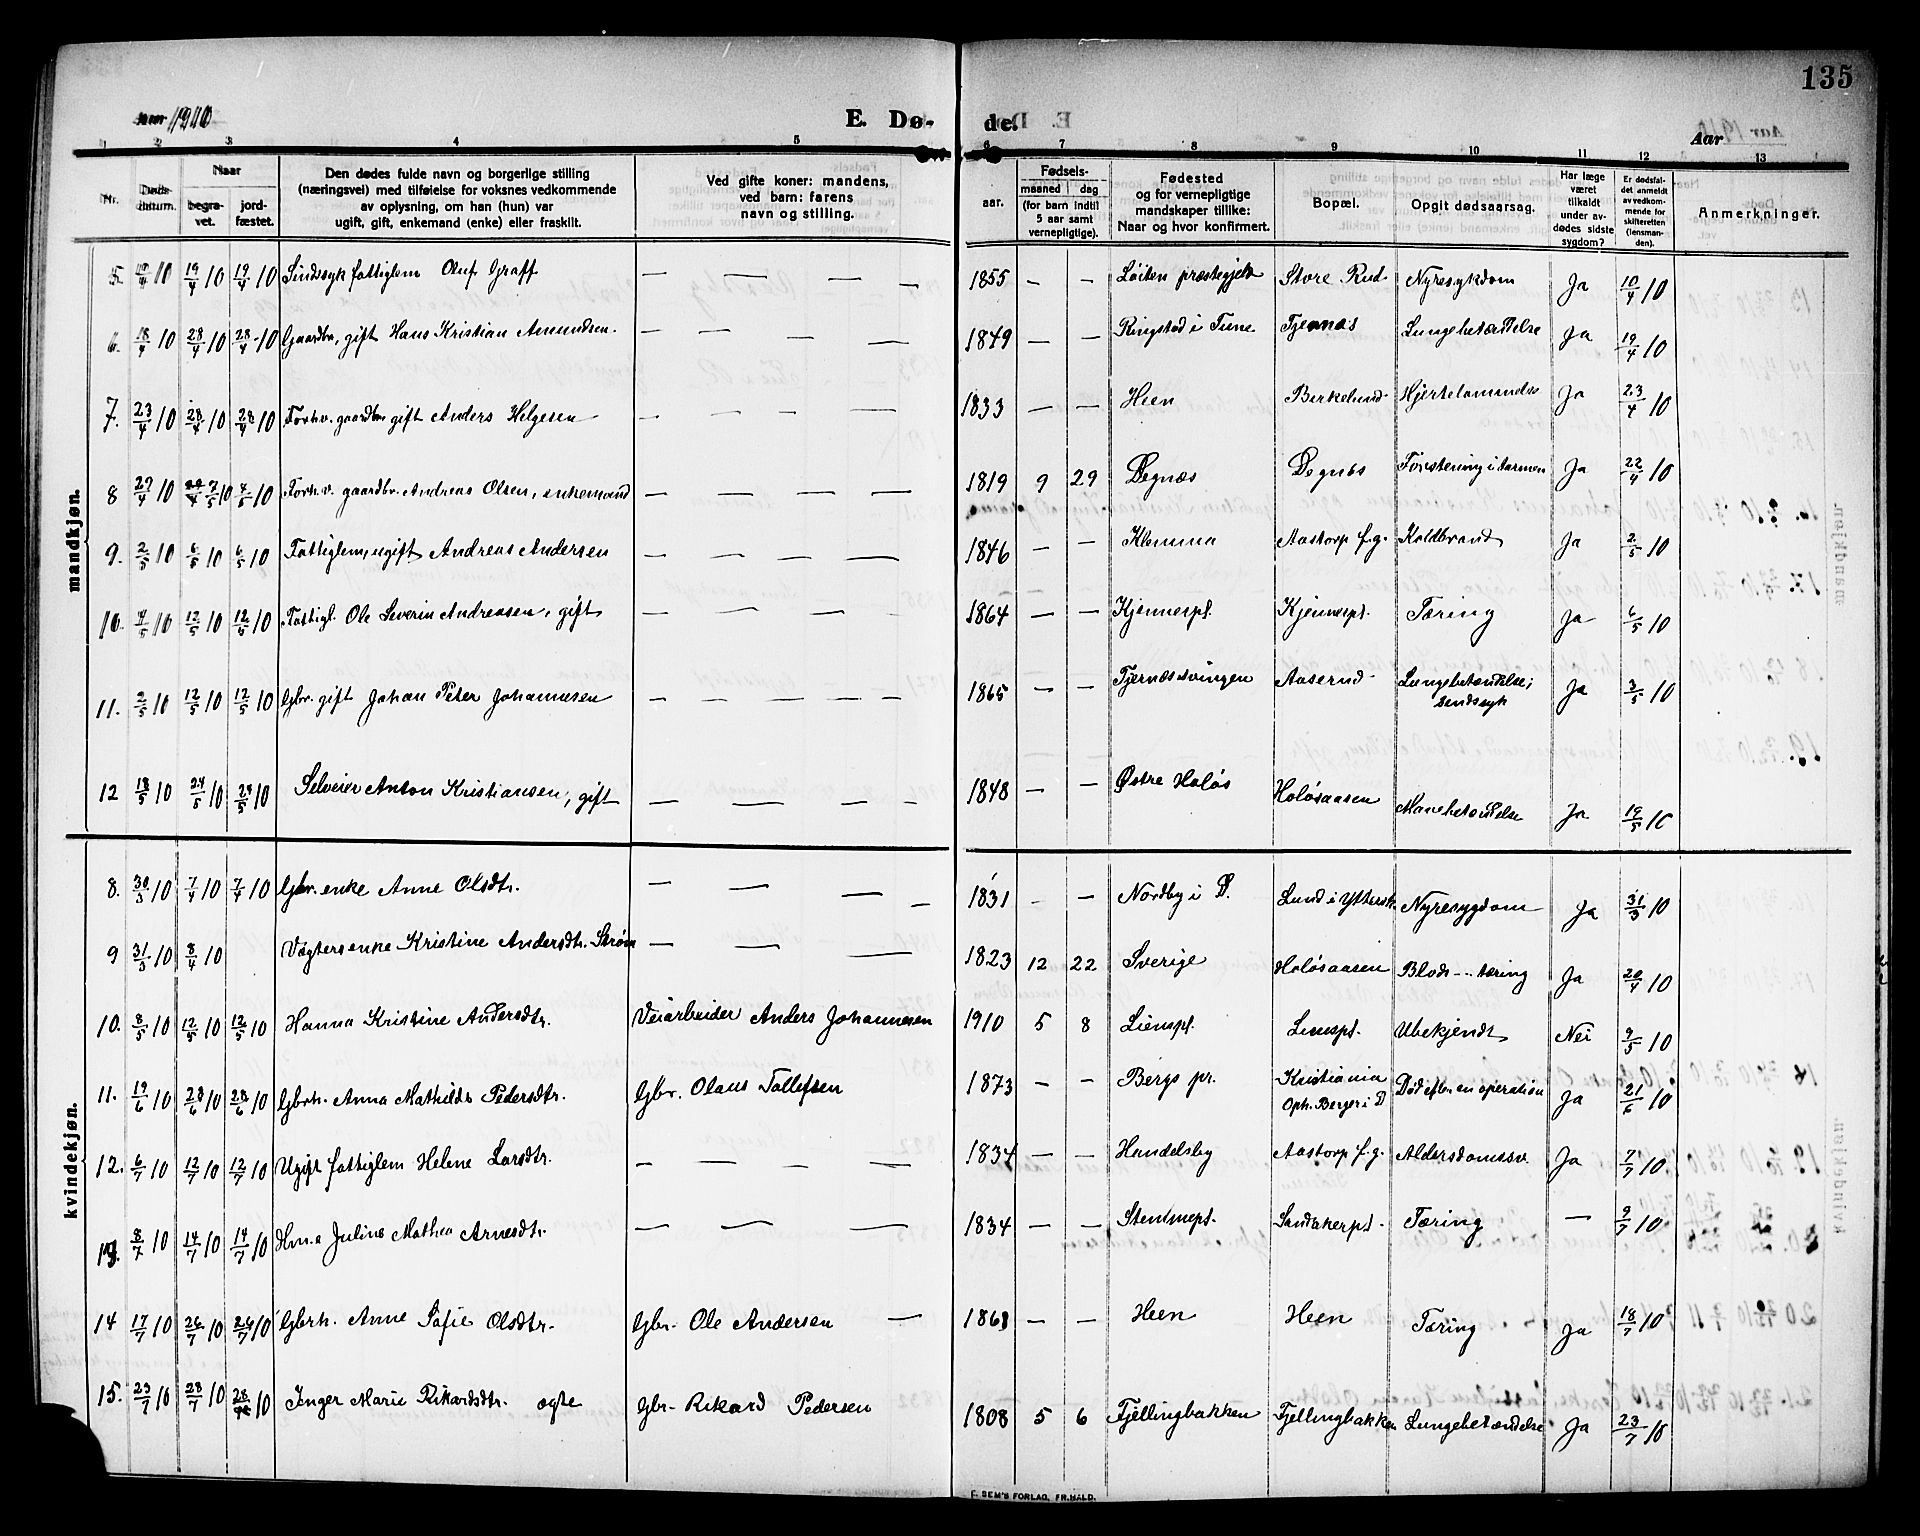 135
Aar 1910
E. Dø- de.
Aar
1 2 3 4 5 6 7 8 9 10 11 12 13
Nr.
Døds-datum.
Naar
begra-vet.
jord-fæstet.
Den dødes fulde navn og borgerlige stilling
(næringsvei) med tilføielse for voksnes vedkommende
av oplysning, om han (hun) var
ugift, gift, enkemand (enke) eller fraskilt.
Ved gifte koner: mandens,
ved barn: farens
navn og stilling.
Fødsels-
aar.
maaned
dag
(for barn indtil
5 aar samt
vernepligtige).
Fødested
og for vernepligtige
mandskaper tillike:
Naar og hvor konfirmert.
Bopæl.
Opgit dødsaarsag.
Har læge
været
tilkaldt
under av-
dødes sidste
sygdom?
Er dødsfal-
det anmeldt
av vedkom-
mende for
skifteretten
(lensman-
den).
Anmerkninger.
mandkjøn.
5. 10 19/4 10 19/4 10 Sindssyk fattiglem Oluf Graff — — — — 1855 — — Løiten præstegjeld Store Rud Nyresykdom Ja 10/4 10
6. 18/4 10 28/4 10 28/4 10 Gaardbr, gift Hans Kristian Amundsen. — — — — 1849 — — Ringstad i Tune Tjernæs Lungebetændelse Ja 19/4 10
7. 23/4 10 28/4 10 28/4 10 Forhv. gaardbr gift Anders Helgesen — — — — — 1833 — — Heen Birkelund Hjertelammelse Ja 23/4 10
8 10 7/5 10 10 Forhv. gaardbr. Andreas Olsen, enkemand — — — — 1819 9 29 Degnæs Degnæs Forstening i tarmen Ja 22/4 10
9. 2/5 10 6/5 10 6/5 10 Fattiglem, ugift Andreas Andersen — — — — 1846 — — Klemma Aastorp f.g. Koldbrand Ja 2/5 10
10. 4/5 10 12/5 10 12/5 10 Fattigl. Ole Severin Andreasen, gift — — — — 1864 — — Kjennerpl. Kjennerpl. Tæring Ja 6/5 10
11. 2/5 10 12/5 10 12/5 10 Gbr. gift Johan Peter Johannesen — — — — 1865 — — Tjernæssvingen Aaserud Lungebetændelse;
sindssyk Ja 3/5 10
12 18/5 10 24/5 10 10 Selveier Anton Kristiansen, gift — — — — 1848 — — Østre Holøs Holøsaasen Mavebetændelse Ja 19/5 10
kvindekjøn.
8. 30/3 10 7/4 10 7/4 10 Gbr. enke Anne Olsdtr. — — — — 1831 — — Nordby i D. Lund i Yttersk. Nyresygdom Ja 31/3 10
9 31/3 10 8/4 10 Vægters enke Kristine Andersdtr. Strøm — — 1823 12 22 Sverige Holøsaasen Blods---tæring Ja 20/4 10
10. 8/5 10 12/5 10 12/5 10 Hanna Kristine Andersdtr. Veiarbeider Anders Johannesen 1910 5 8 Lienspl. Lienspl. Ubekjendt Nei 9/5 10
11. 19/6 10 28/6 10 28/6 10 Gbrh. Anna Mathilde Pedersdtr. Gbr. Olaus Tollefsen 1873 — — Bergs pr. Kristiania
Oph. Berger i D Død efter en operation Ja 21/6 10
12. 6/7 10 12/7 10 12/7 10 Ugift fattiglem Helene Larsdtr. — — — — 1834 — — Handelsby Aastorp f.g. Aldersdomssv. Ja 7/7 10
13. 8/7 10 14/7 10 14/7 10 Hm.e Juline Mathea Arnesdtr. — — — 1834 — — Stenmepl. Sandakerpl. Tæring — 9/7 10
14 17/7 10 26/7 10 26/7 10 Gbrh. Anne Sofie Olsdtr. Gbr. Ole Andersen — — — Heen Heen Tæring Ja 18/7 10
15. 23/7 10 28/7 10 10 Inger Marie Rikardsdtr. ogte Gbr. Rikard Pedersen 1808 5 6 Fjellingbakken Fjellingbakken Lungebetændelse Ja 23/7 10
F. SEM'S FORLAG, FR.HALD.